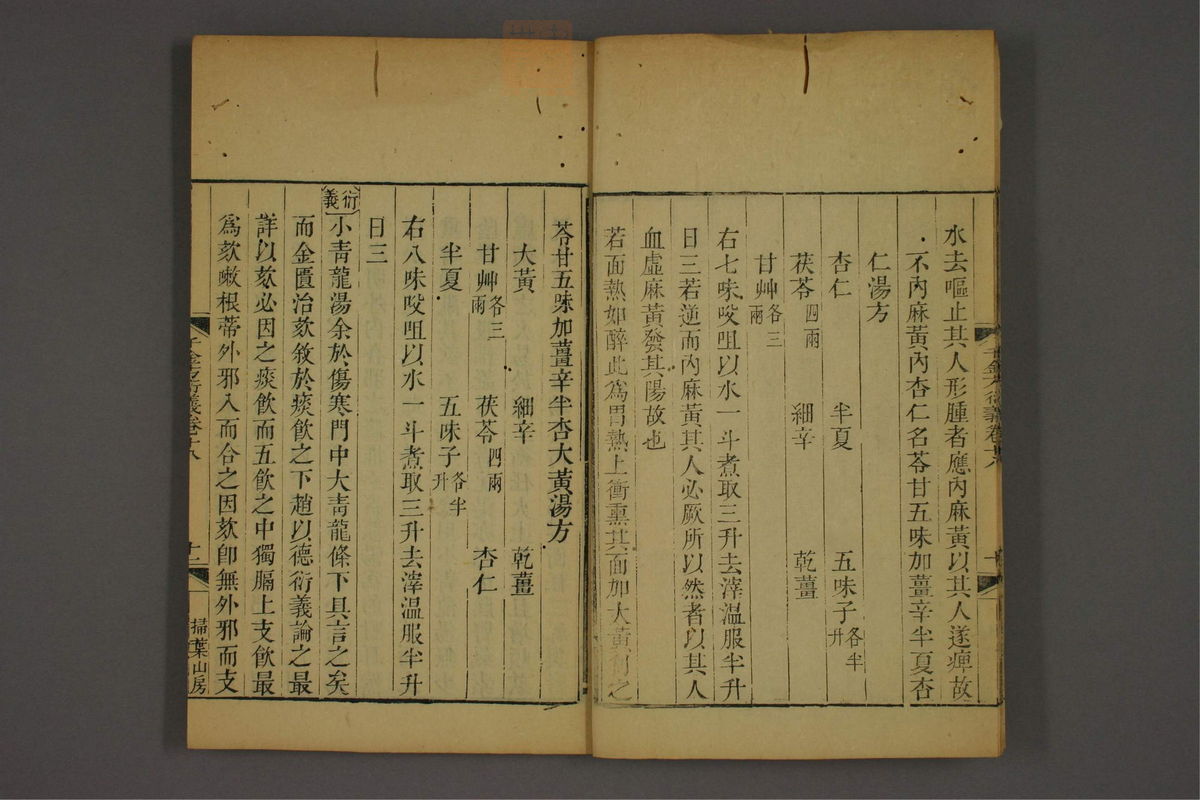 水去嘔止其人形腫者應內麻黃以其人遂痺故
不內麻黃內杏仁名苓甘五味加薑辛半夏杏
仁湯方
杏仁 半夏 五味子各半升
茯苓四兩 細辛 乾薑
甘艸各三兩
右七味㕮咀以水一斗煮取三升去滓溫服半升
日三若逆而內麻黃其人必厥所以然者以其人
血虛麻黃發其陽故也
若面熱如醉此爲胃熱上衝熏其面加大黃利之
千金方衍義卷十八
十一
苓甘五味加薑辛半杏大黃湯方
大黃 細辛 乾薑
甘艸各三兩 茯苓四兩 杏仁
半夏 五味子各半升
右八味㕮咀以水一斗煮取三升去滓溫服半升
日三
衍義 小青龍湯余於傷寒門中大青龍條下具言之矣
而金匱治欬敘於痰飲之下趙以德衍義論之最
詳以欬必因之痰飲而五飲之中獨膈上支飲最
爲欬嗽根蒂外邪入而合之因欬卽無外邪而支
掃葉山房